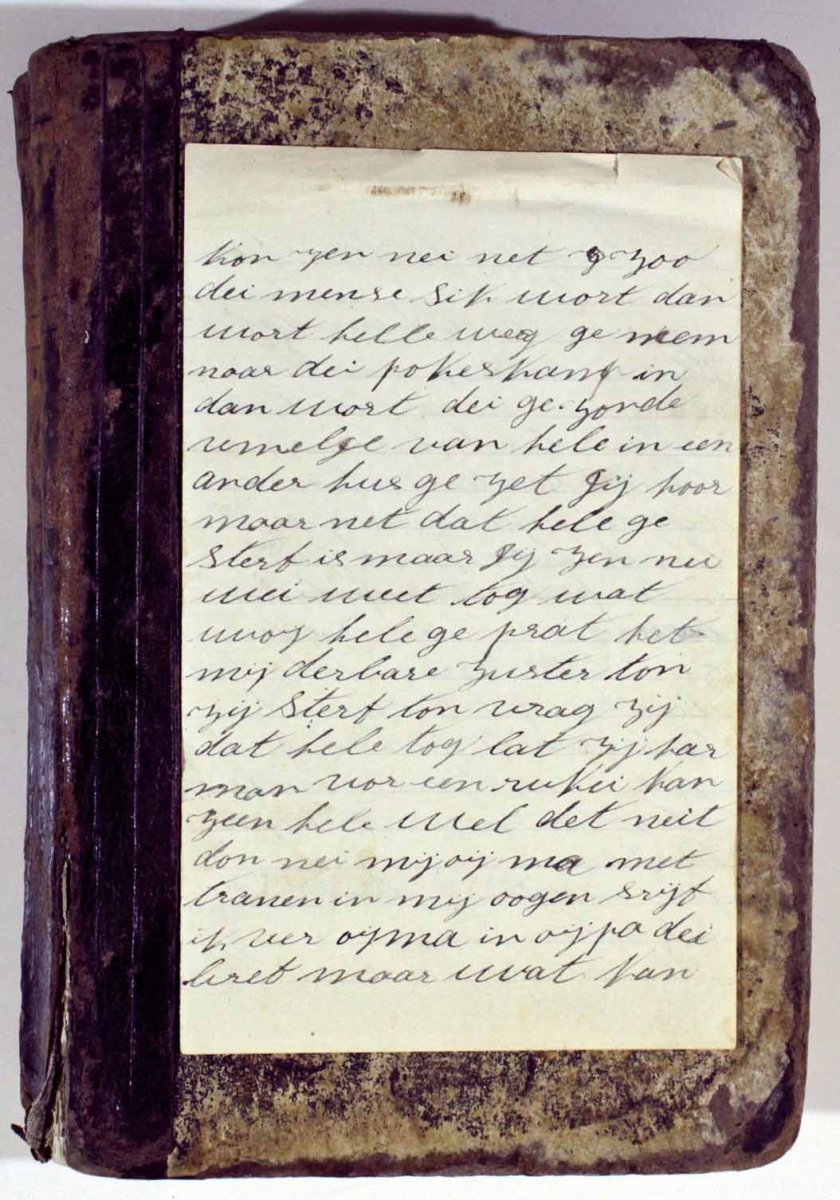 kon zen nei net zoo
dei mense sik wort dan
wort helle weg ge mem
naar dei pokeskamp in
dan wort dei ge zonde
van hele in een
ander hus ge zet Jij hoor
maar net dat hele ge
sterf is maar Jij zen nei
wei weet tog wat
woy hele ge prat het
mij derbare zuster ton
zij sterf ton vrag zij
dat hele tog lat zij har
man vor een rukei kan
zeen hele wel det neit
don nei mij oij ma met
tranen in mij oogen srijf
ik ver oijma in oijpa dei
bret maar wat kan